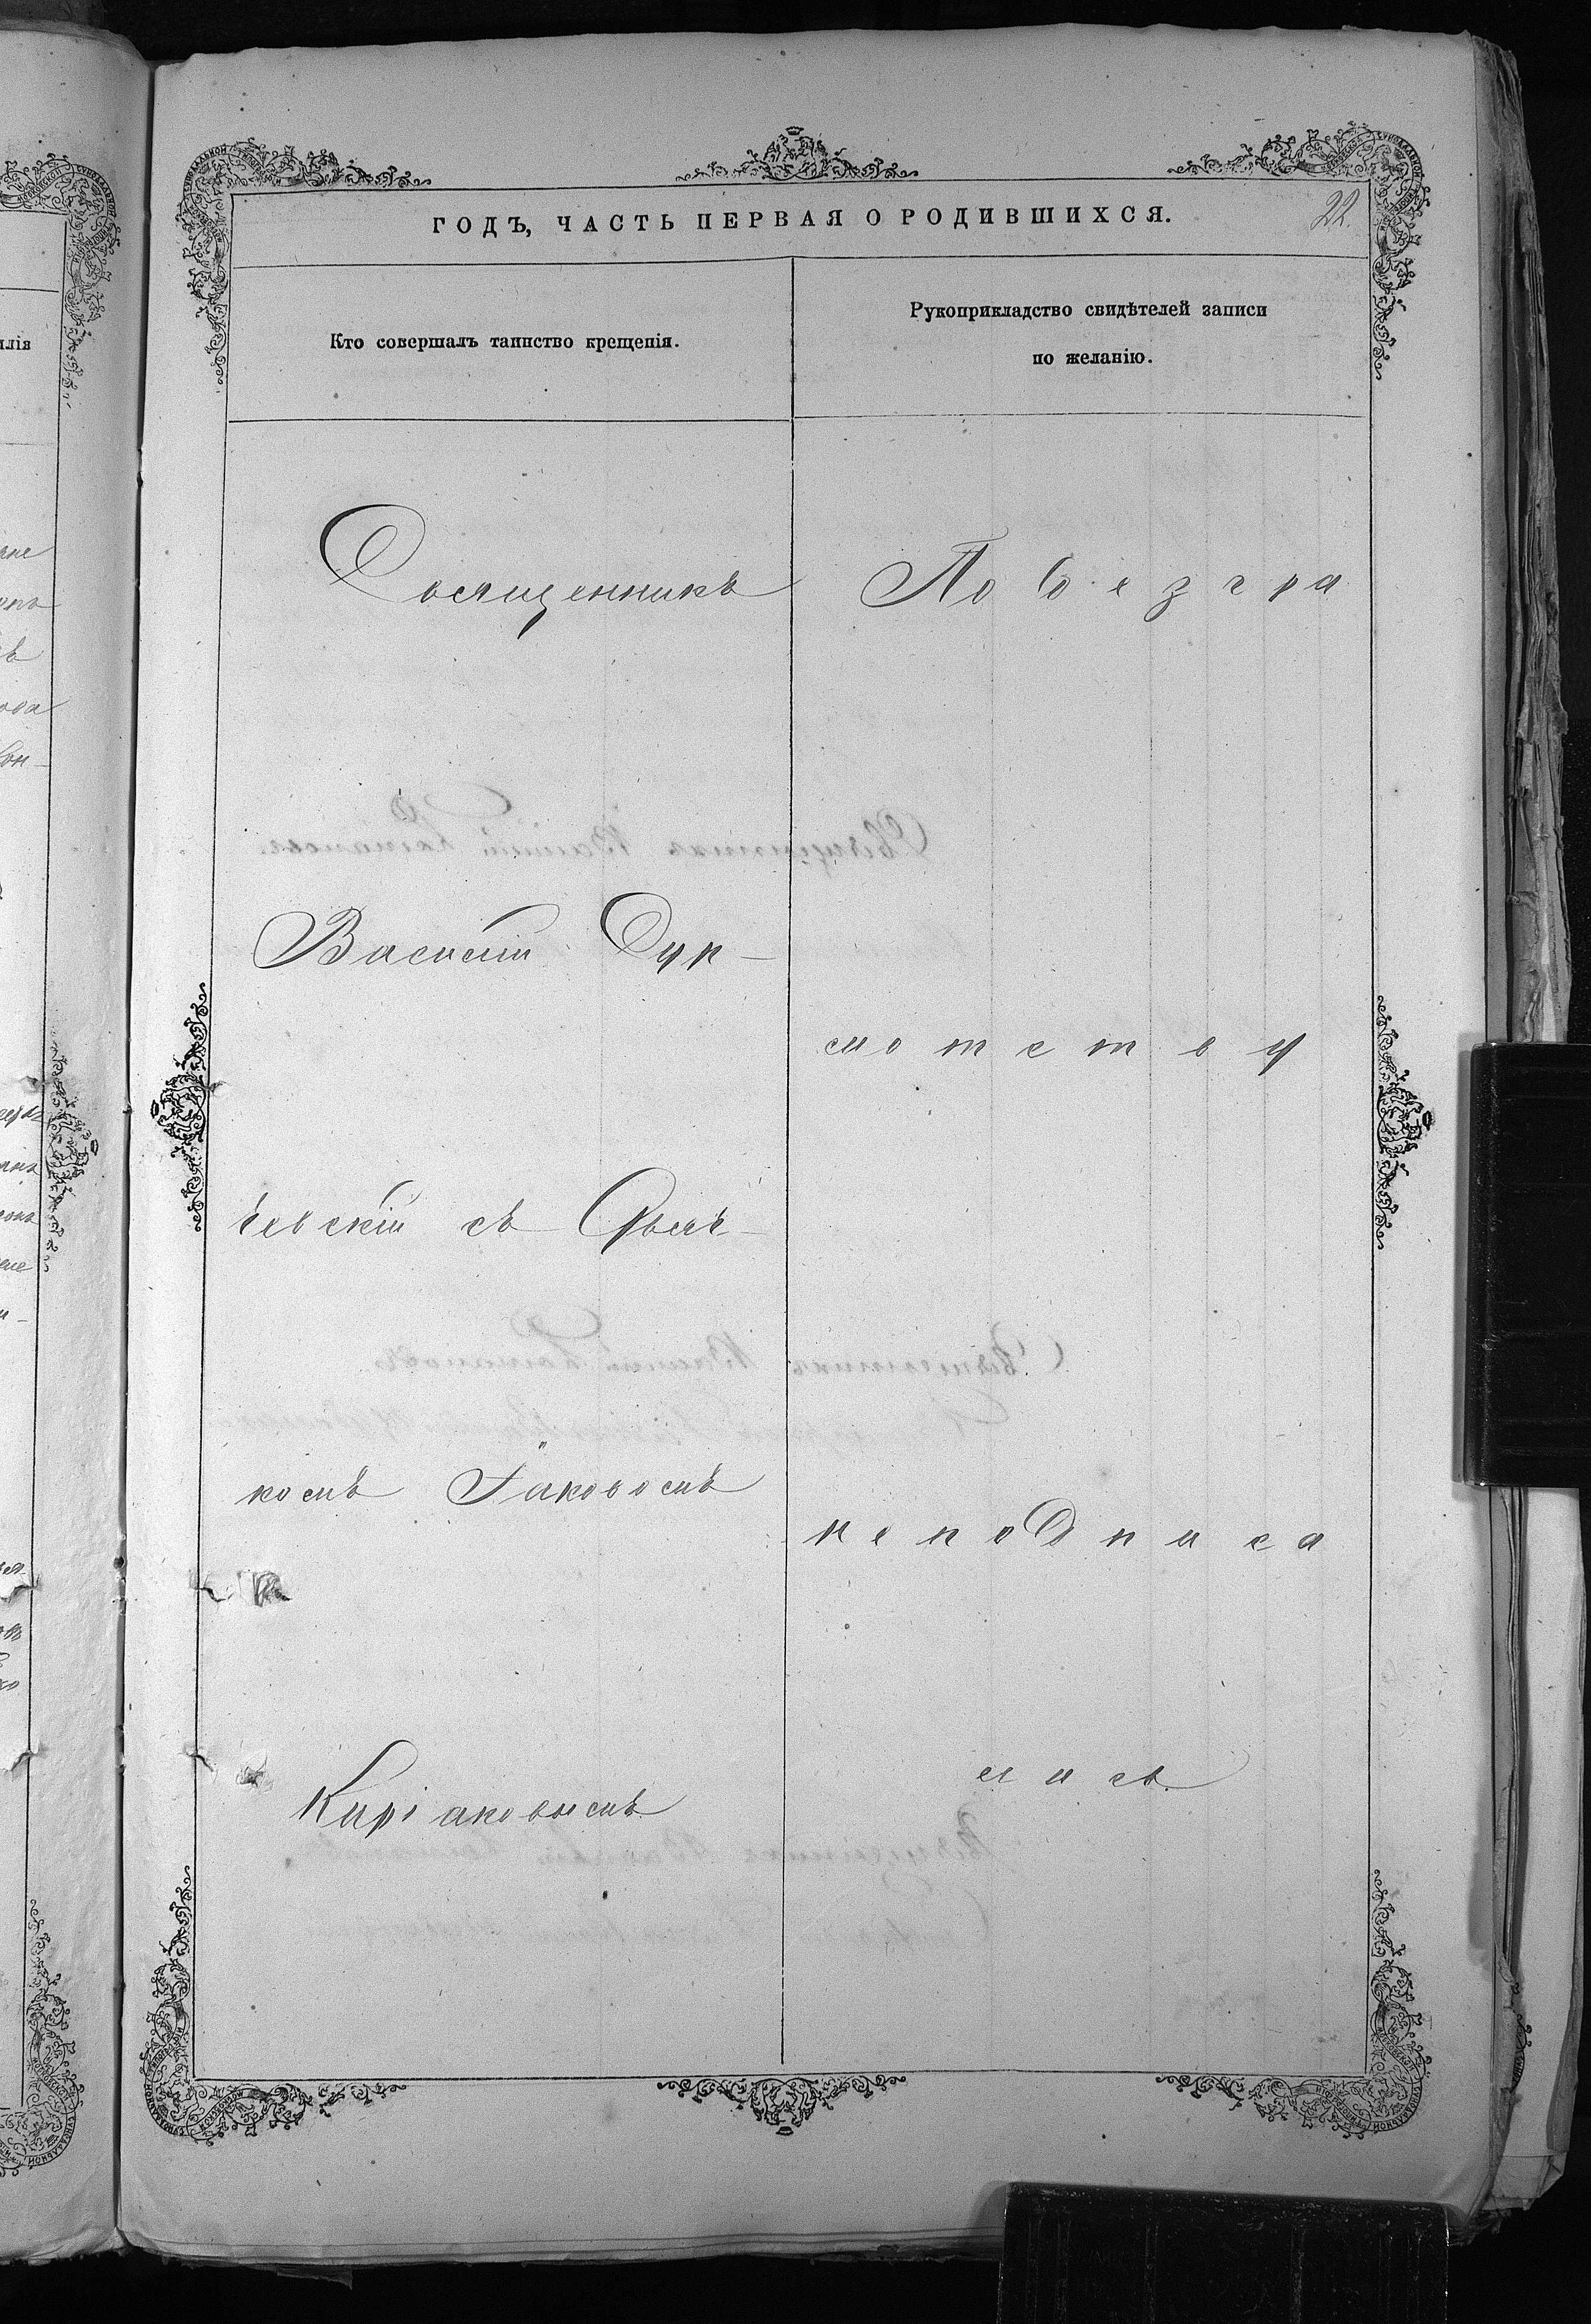 ГОДЪ, ЧАСТЬ ПЕРВАЯ О РОДИВШИХСЯ.
22.
Кто совершалъ таинство крещенія.
Рукоприкладство свидѣтелей записи
по желанію.
Священникъ
Василій Дур-
чевскій съ Дьяч-
комъ Іаковомъ
Киріаковымъ
По безгра
мотству
неподписа
лись